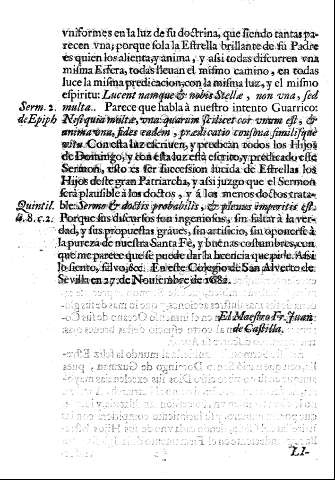 vniformes en la luz de su doctrina, que siendo tantas pa-
recen vna; porque sola la Estrella brillante de su Padre
es quien los alienta, y anima, y assi todas discurren vna
misma Esfera, todas lleuan el mismo camino, en todas
luce la misma predicacion, con la misma luz, y el mismo
espiritu: Lucent namque & nobis Stellæ, non vna, sed
Serm. 2. multa.. Parece que habla à nuestro intento Guarrico:
de Epiph Nisi quia multæ, vna: quarum scilicet cor vnum est, &
anima vna, fides eadem, prædicatio
vita. Con esta luz escriuen, y predican todos los Hijos
de Domingo, y con esta luz està escrito, y predicado este
Sermon, visto es ser succession lucida de Estrellas los
Hijos deste gran Patriarcha, y assi juzgo que el Sermon
serà plausible à los doctos, y à los menos doctos trata-
Quintil. ble. Sermo & doctis probabilis, & planus imperitis est.
8. c. 2. Porque sus discursos son ingeniosos, sin faltar à la ver-
dad, y sus propuestas graues, sin artificio, sin oponerse à
la pureza de nuestra Santa Fè, y buenas costumbres, con
que me parece que se puede dar la licencia que pide. Assi
lo siento, salvo, &c. En este Colegio de San Alverto de
Sevilla en 27. de Nouiembre de 1682.
El Maestro Fr. Juan
de Castilla.
LI-